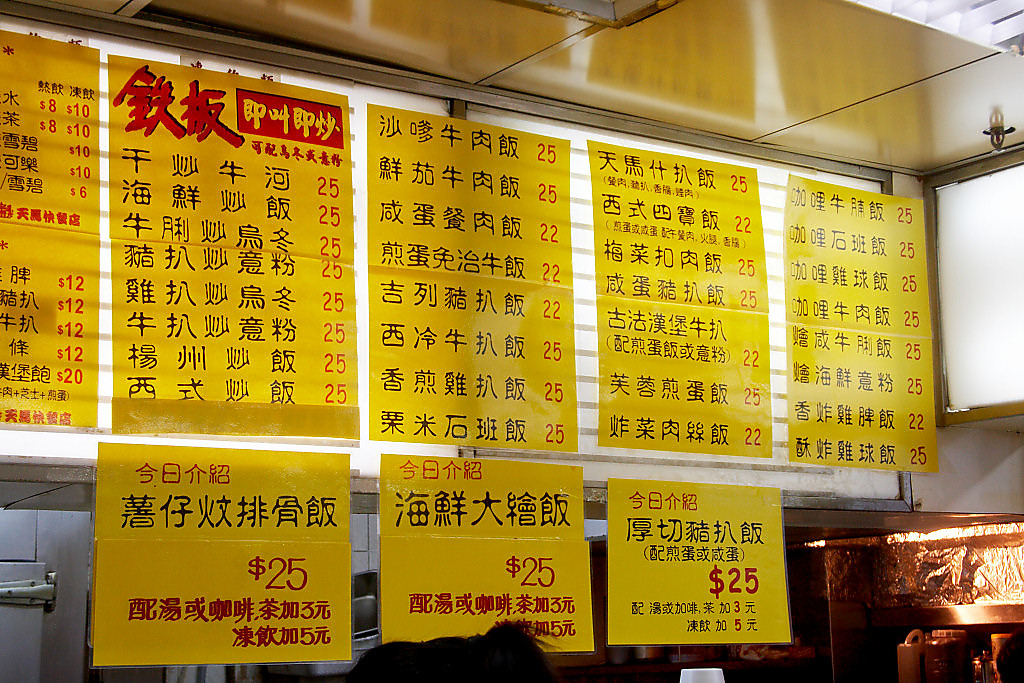 熱飲 凍飲
水 $8 $10
茶 $8 $10
雪碧 $10
可樂 $10
/雪碧 $6
天馬快餐店
脾 $12
豬扒 $12
牛扒 $12
條 $12
漢堡飽 $20
牛肉+芝士+煎蛋)
天馬快餐店
鉄板 即叫即炒
可配烏冬或意粉
干炒牛河 25
海鮮炒飯 25
牛脷炒烏冬 25
豬扒炒意粉 25
雞扒炒烏冬 25
牛扒炒意粉 25
楊州炒飯 25
西式炒飯 25
沙嗲牛肉飯 25
鮮茄牛肉飯 25
咸蛋餐肉飯 22
煎蛋免治牛飯 22
吉列豬扒飯 22
西冷牛扒飯 25
香煎雞扒飯 25
栗米石班飯 25
天馬什扒飯 25
(餐肉,豬扒,香腸,雞肉)
西式四寶飯 22
(煎蛋或咸蛋 配午餐肉,火腿,香腸)
梅菜扣肉飯 25
咸蛋豬扒飯 25
古法漢堡牛扒
(配煎蛋飯或意粉) 22
芙蓉煎蛋飯 25
炸菜肉絲飯 22
咖哩牛腩飯 25
咖哩石班飯 25
咖哩雞球飯 25
咖哩牛肉飯 25
燴咸牛脷飯 25
燴海鮮意粉 25
香炸雞脾飯 22
酥炸雞球飯 25
今日介紹
薯仔炆排骨飯
$25
配湯或咖啡,茶加3元
凍飲加5元
今日介紹
海鮮大繪飯
$25
配湯或咖啡,茶加3元
凍飲加5元
今日介紹
厚切豬扒飯
(配煎蛋或咸蛋)
$25
配湯或加啡,茶加3元
凍飲加5元